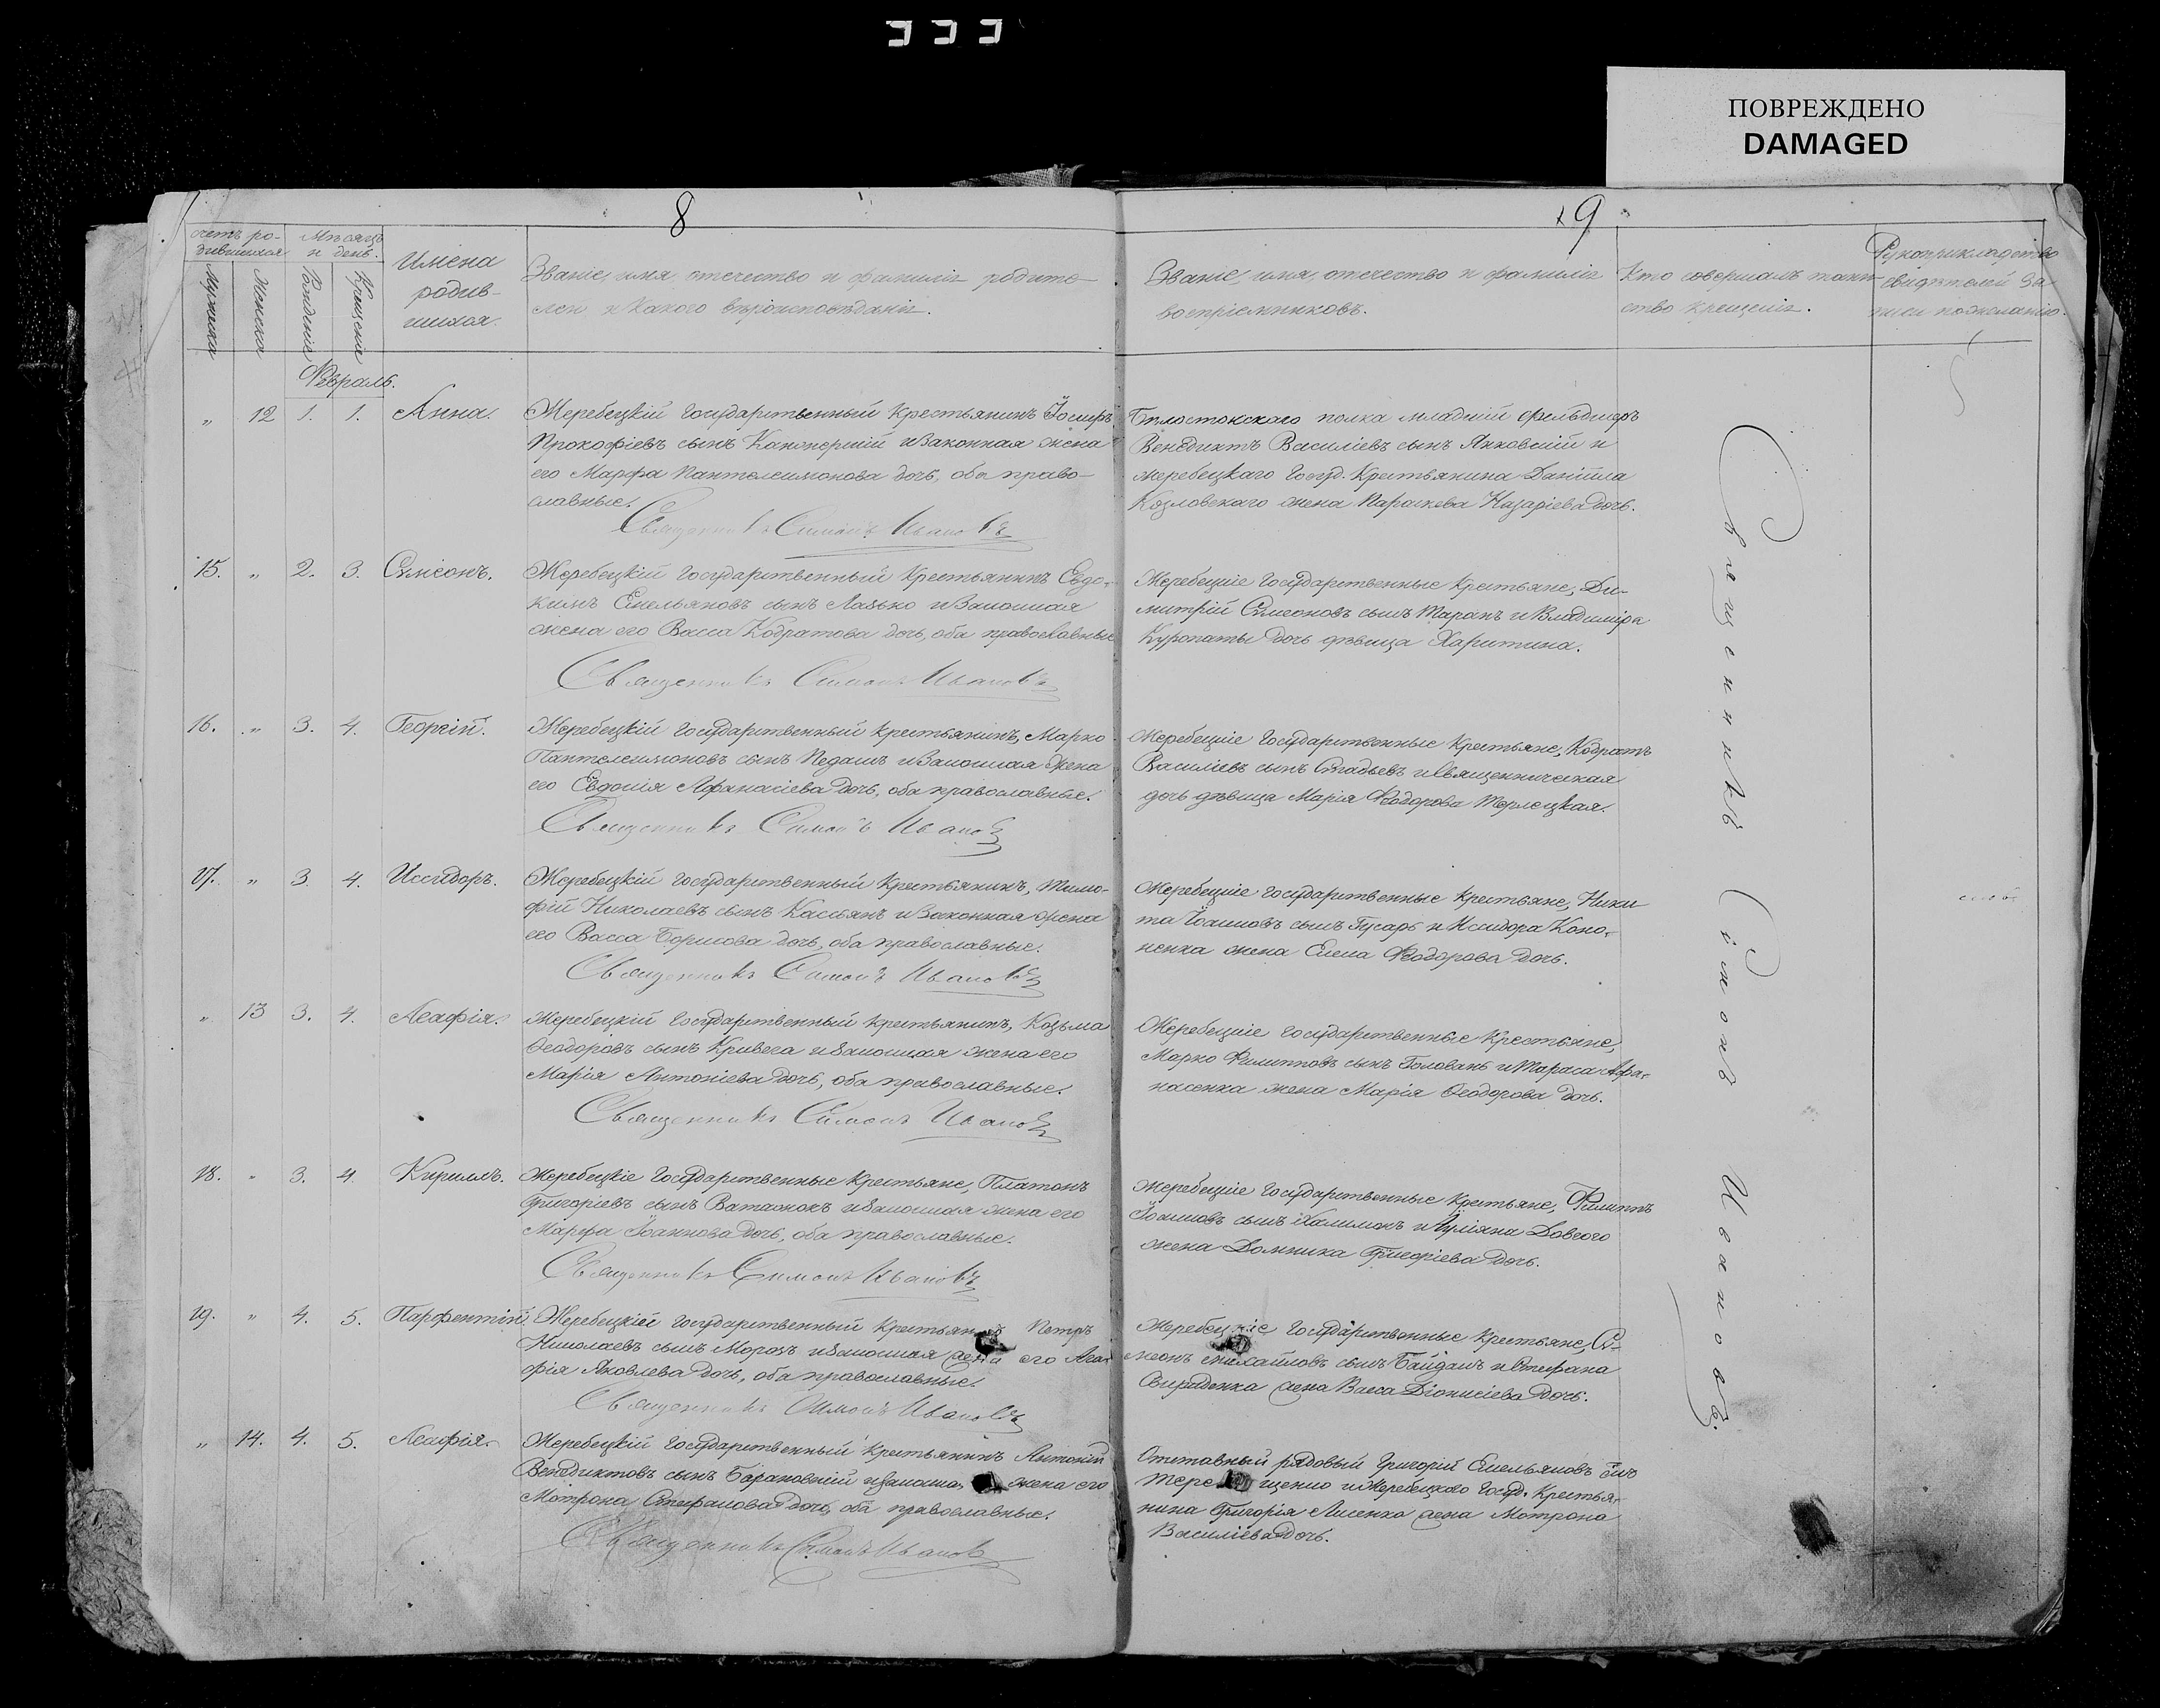 ПОВРЕЖДЕНО
DAMAGED
8
9
счетъ ро-
дившихся
Мѣсяцъ
и день.
Мужска
Женска
Рожденіе
Крещеніе
Имена
родив-
шихся.
Званіе, имя, отечество и фамилія родите-
лей и какого вѣроисповѣданія.
Званіе, имя, отечество и фамилія
воспріемниковъ.
Кто совершалъ таин-
ство крещенія.
Рукоприкладство
свидѣтелей за
писи по желанію.
Февраль.
" 12 1. 1. Анна.
Жеребецкій государственный крестьянинъ Іосифъ
Прокофіевъ сынъ и законная жена
его Марфа Пантелеимонова дочь, оба право-
славные.
Священникъ Симонъ Ивановъ
Бѣлостокскаго полка младшій фельдшеръ
Венедиктъ Василіевъ сынъ Янковскій и
жеребецкаго госуд. крестьянина Даніила
Козловскаго жена Параскева Назаріева дочь.
15. " 2. 3. Симеонъ.
Жеребецкій государственный крестьянинъ Евдо-
кимъ Емельяновъ сынъ Лазько и законная
жена его Васса Кодратова дочь, оба православные
Священникъ Симонъ Ивановъ
Жеребецкіе государственные крестьяне, Ди-
митрій Симеоновъ сынъ Таранъ и Владиміра
Куропаты дочь дѣвица Харитина.
16. " 3. 4. Георгій.
Жеребецкій государственный крестьянинъ, Марко
Пантелеимоновъ сынъ Педашъ и законная жена
его Евдокія Афанасіева дочь, оба православные.
Священникъ Симонъ Ивановъ
Жеребецкіе государственные крестьяне, Кодратъ
Василіевъ сынъ и священническая
дочь дѣвица Марія Ѳеодорова Терлецкая.
17. " 3. 4. Исидоръ.
Жеребецкій государственный крестьянинъ, Тимо-
фій Николаевъ сынъ Касьянъ и законная жена
его Васса Борисова дочь, оба православные.
Священникъ Симонъ Ивановъ
Жеребецкіе государственные крестьяне, Ники
та Іоанновъ сынъ Гусарь и Исидора Коно-
ненка жена Елена Ѳеодорова дочь.
" 13 3. 4. Агафія.
Жеребецкій государственный крестьянинъ, Козьма
Ѳеодоровъ сынъ Кривега и законная жена его
Марія Антоніева дочь, оба православные.
Священникъ Симонъ Ивановъ
Жеребецкіе государственные крестьяне,
Марко Филипповъ сынъ Головань и Тараса Афа-
насенка жена Марія Ѳеодорова дочь.
18. " 3. 4. Кириллъ.
Жеребецкіе государственные крестьяне, Платонъ
Григоріевъ сынъ и законная жена его
Марфа Іоаннова дочь, оба православные.
Священникъ Симонъ Ивановъ
Жеребецкіе государственные крестьяне, Филиппъ
Іоанновъ сынъ Халимонъ и Іуліяна Довгого
жена Домника Григоріева дочь.
19. " 4. 5. Парфентій.
Жеребецкій государственный Петръ
Николаевъ сынъ Морозъ и законная жена его Ага-
фія Яковлева дочь, оба православные.
Священникъ Симонъ Ивановъ
Жеребецкіе государственные крестьяне, Си-
меонъ Михайловъ сынъ Байдашъ и Стефана
Свириденка жена Васса Діонисіева дочь.
" 14. 4. 5. Агафія.
Жеребецкій государственный крестьянинъ Антоній
Венедиктовъ сынъ Барановскій и жена его
Мотрона Стефанова дочь, оба православные.
Священникъ Симонъ Ивановъ
Отставный рядовый Григорій Емельяновъ сынъ
и Жеребецкаго госуд. крестья-
нина Григорія Лисенка жена Мотрона
Василіева дочь.
Священникъ Симонъ Ивановъ.